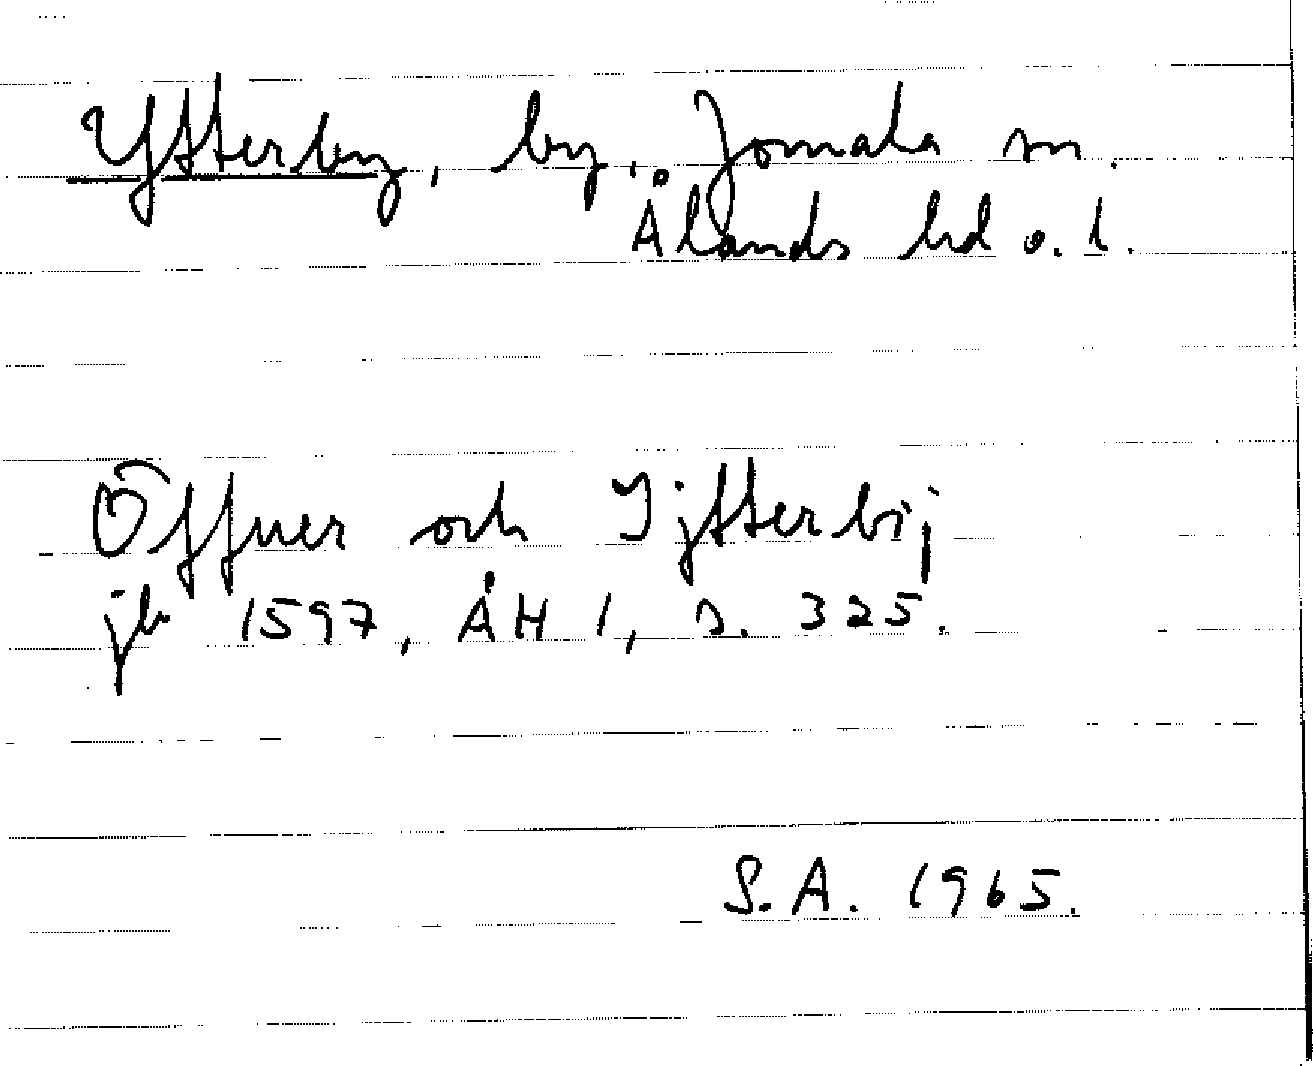 Yttterby, by, Jomala sn.
Ålands hd o. l.
Öffuer och Ijtterbij
jb 1597, ÅH 1, s. 325.
S.A. 1965.